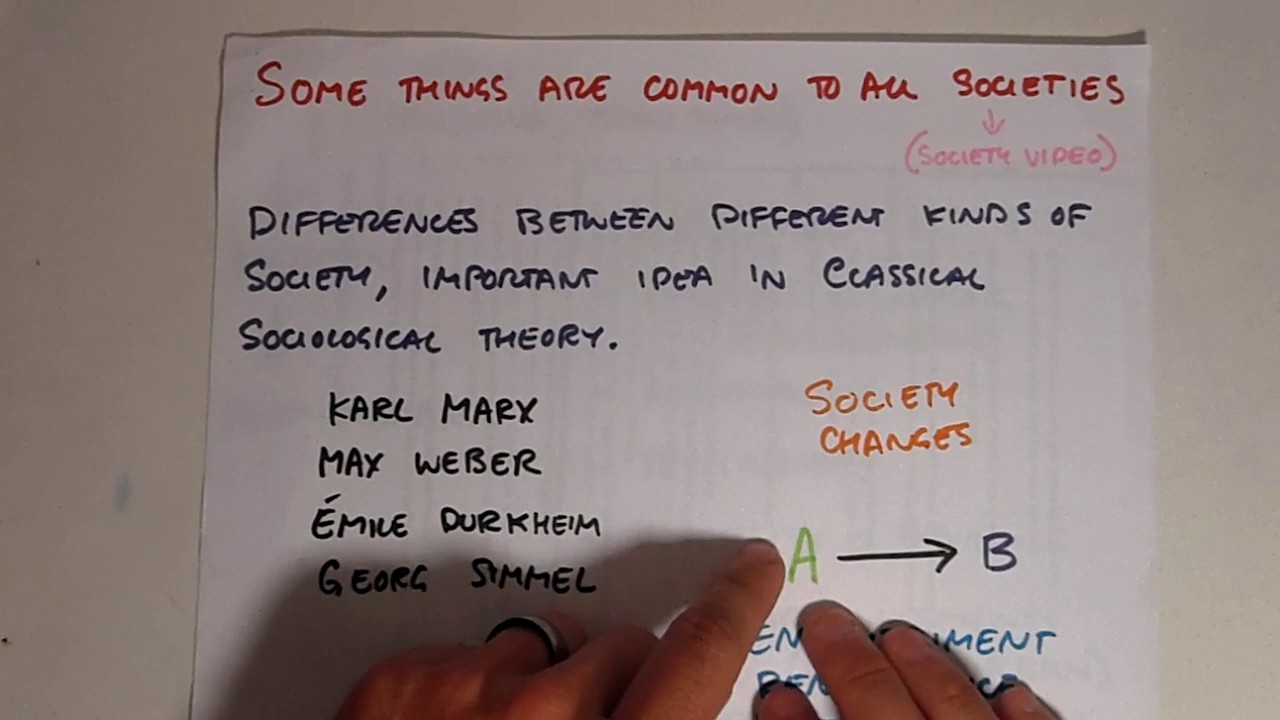 SOME THINGS ARE COMMON TO ALL SOCIETIES
(SOCIETY VIDEO)
DIFFERENCES BETWEEN DIFFERENT KINDS OF
SOCIETY, IMPORTANT IDEA IN CLASSICAL
SOCIOLOGICAL THEORY.
KARL MARX
MAX WEBER
ÉMILE DURKHEIM
GEORG SIMMEL
SOCIETY
CHANGES
A → B